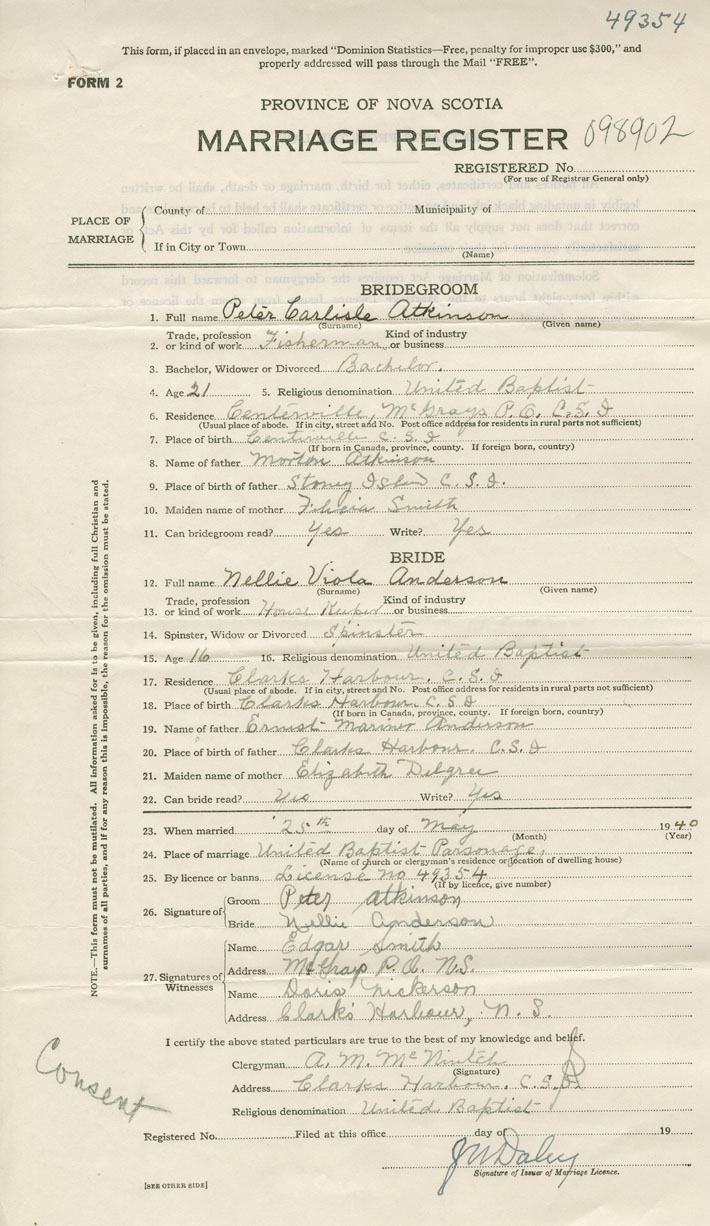 49354
This form, if placed in an envelope, marked "Dominion Statistics—Free, penalty for improper use $300," and
properly addressed will pass through the Mail "FREE".
FORM 2
PROVINCE OF NOVA SCOTIA
MARRIAGE REGISTER 098902
REGISTERED No.
(For use of Registrar General only)
PLACE OF MARRIAGE
County of Municipality of
If in City or Town
(Name)
BRIDEGROOM
1. Full name Peter Carlisle Atkinson
(Surname) (Given name)
2. Trade, profession or kind of work Fisherman Kind of industry or business
3. Bachelor, Widower or Divorced Bachelor.
4. Age 21 5. Religious denomination United Baptist
6. Residence Centerville, McGrays P.O. C.S.I
(Usual place of abode. If in city, street and No. Post office address for residents in rural parts not sufficient)
7. Place of birth Centerville C.S.I
(If born in Canada, province, county. If foreign born, country)
8. Name of father Morton Atkinson
9. Place of birth of father Stoney Island C.S.I.
10. Maiden name of mother Smith
11. Can bridegroom read? Yes Write? Yes
BRIDE
12. Full name Nellie Viola Anderson
(Surname) (Given name)
13. Trade, profession or kind of work House Keeker Kind of industry or business
14. Spinster, Widow or Divorced Spinster
15. Age 16 16. Religious denomination United Baptist
17. Residence Clarks Harbour, C.S.I
(Usual place of abode. If in city, street and No. Post office address for residents in rural parts not sufficient)
18. Place of birth Clarks Harbour C.S.I
(If born in Canada, province, county. If foreign born, country)
19. Name of father Ernust Anderson
20. Place of birth of father Clarks Harbour. C.S.I
21. Maiden name of mother Elizabeth
22. Can bride read? Yes Write? Yes
23. When married 25th day of May 1940
(Month) (Year)
24. Place of marriage United Baptist Parsonage,
(Name of church or clergyman's residence or location of dwelling house)
25. By licence or banns License no 49354
(If by licence, give number)
26. Signature of
Groom Peter Atkinson
Bride Nellie Anderson
27. Signatures of Witnesses
Name Edgar Smith
Address McGrays P.O. N.S.
Name Doris Nickerson
Address Clarks Harbour, N.S.
I certify the above stated particulars are true to the best of my knowledge and belief.
Clergyman A. M. McNintch
(Signature)
Address Clarks Harbour, C.S.I
Religious denomination United Baptist
Registered No. Filed at this office day of 19
J W Daley
Signature of Issuer of Marriage Licence.
[SEE OTHER SIDE]
Consent
NOTE.—This form must not be mutilated. All information asked for is to be given, including full Christian and
surnames of all parties, and if for any reason this is impossible, the reason for the omission must be stated.